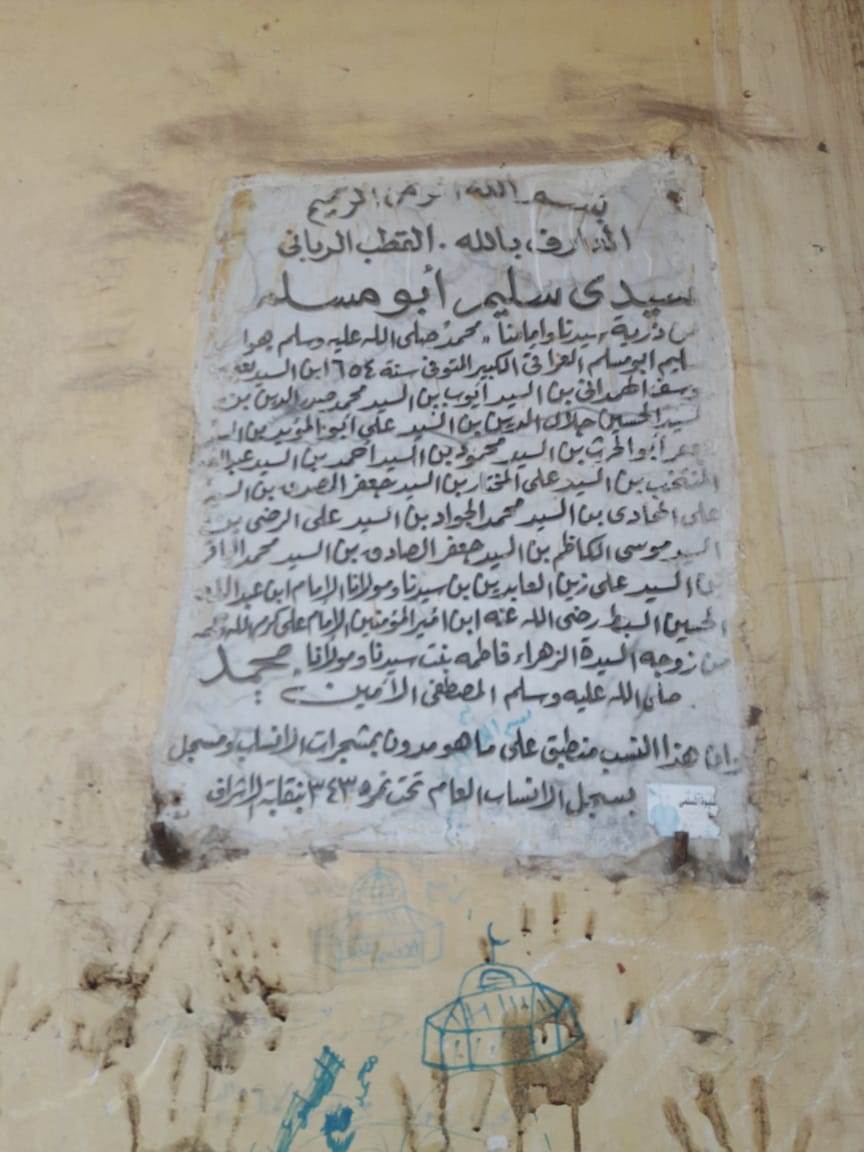 بسم الله الرحمن الرحيم
العارف بالله . القطب الربانى
سيدى سليم أبو مسلم
من ذرية سيدنا وإمامنا " محمد صلى الله عليه وسلم هوا
سليم ابو مسلم العراقى الكبير المتوفى سنة ٦٥٤ ابن السيد
يوسف الهمدانى بن السيد أيوب بن السيد محمد صدر الدين بن
السيد الحسين جلال الدين بن السيد على ابو المؤيد بن السيد
جعفر أبو الحرث بن السيد محمود بن السيد احمد بن السيد عبدالله
المنتخب بن السيد على المختار بن السيد جعفر الصدق بن السيد
على الهادى بن السيد محمد الجواد بن السيد على الرضى بن
السيد موسى الكاظم بن السيد جعفر الصادق بن السيد محمد الباقر
بن السيد على زين العابدين بن سيدنا ومولانا الإمام ابن عبدالله
الحسين السبط رضى الله عنه ابن امير المؤمنين الإمام على كرم الله وجهه
من زوجه السيدة الزهراء فاطمه بنت سيدنا ومولانا محمد
صلى الله عليه وسلم المصطفى الأمين
وان هذا النسب منطبق على ما هو مدون بمشجرات الانساب ومسجل
بسجل الانساب العام تحت نمره ٣٤٣ بنقابة الاشراف
محمد